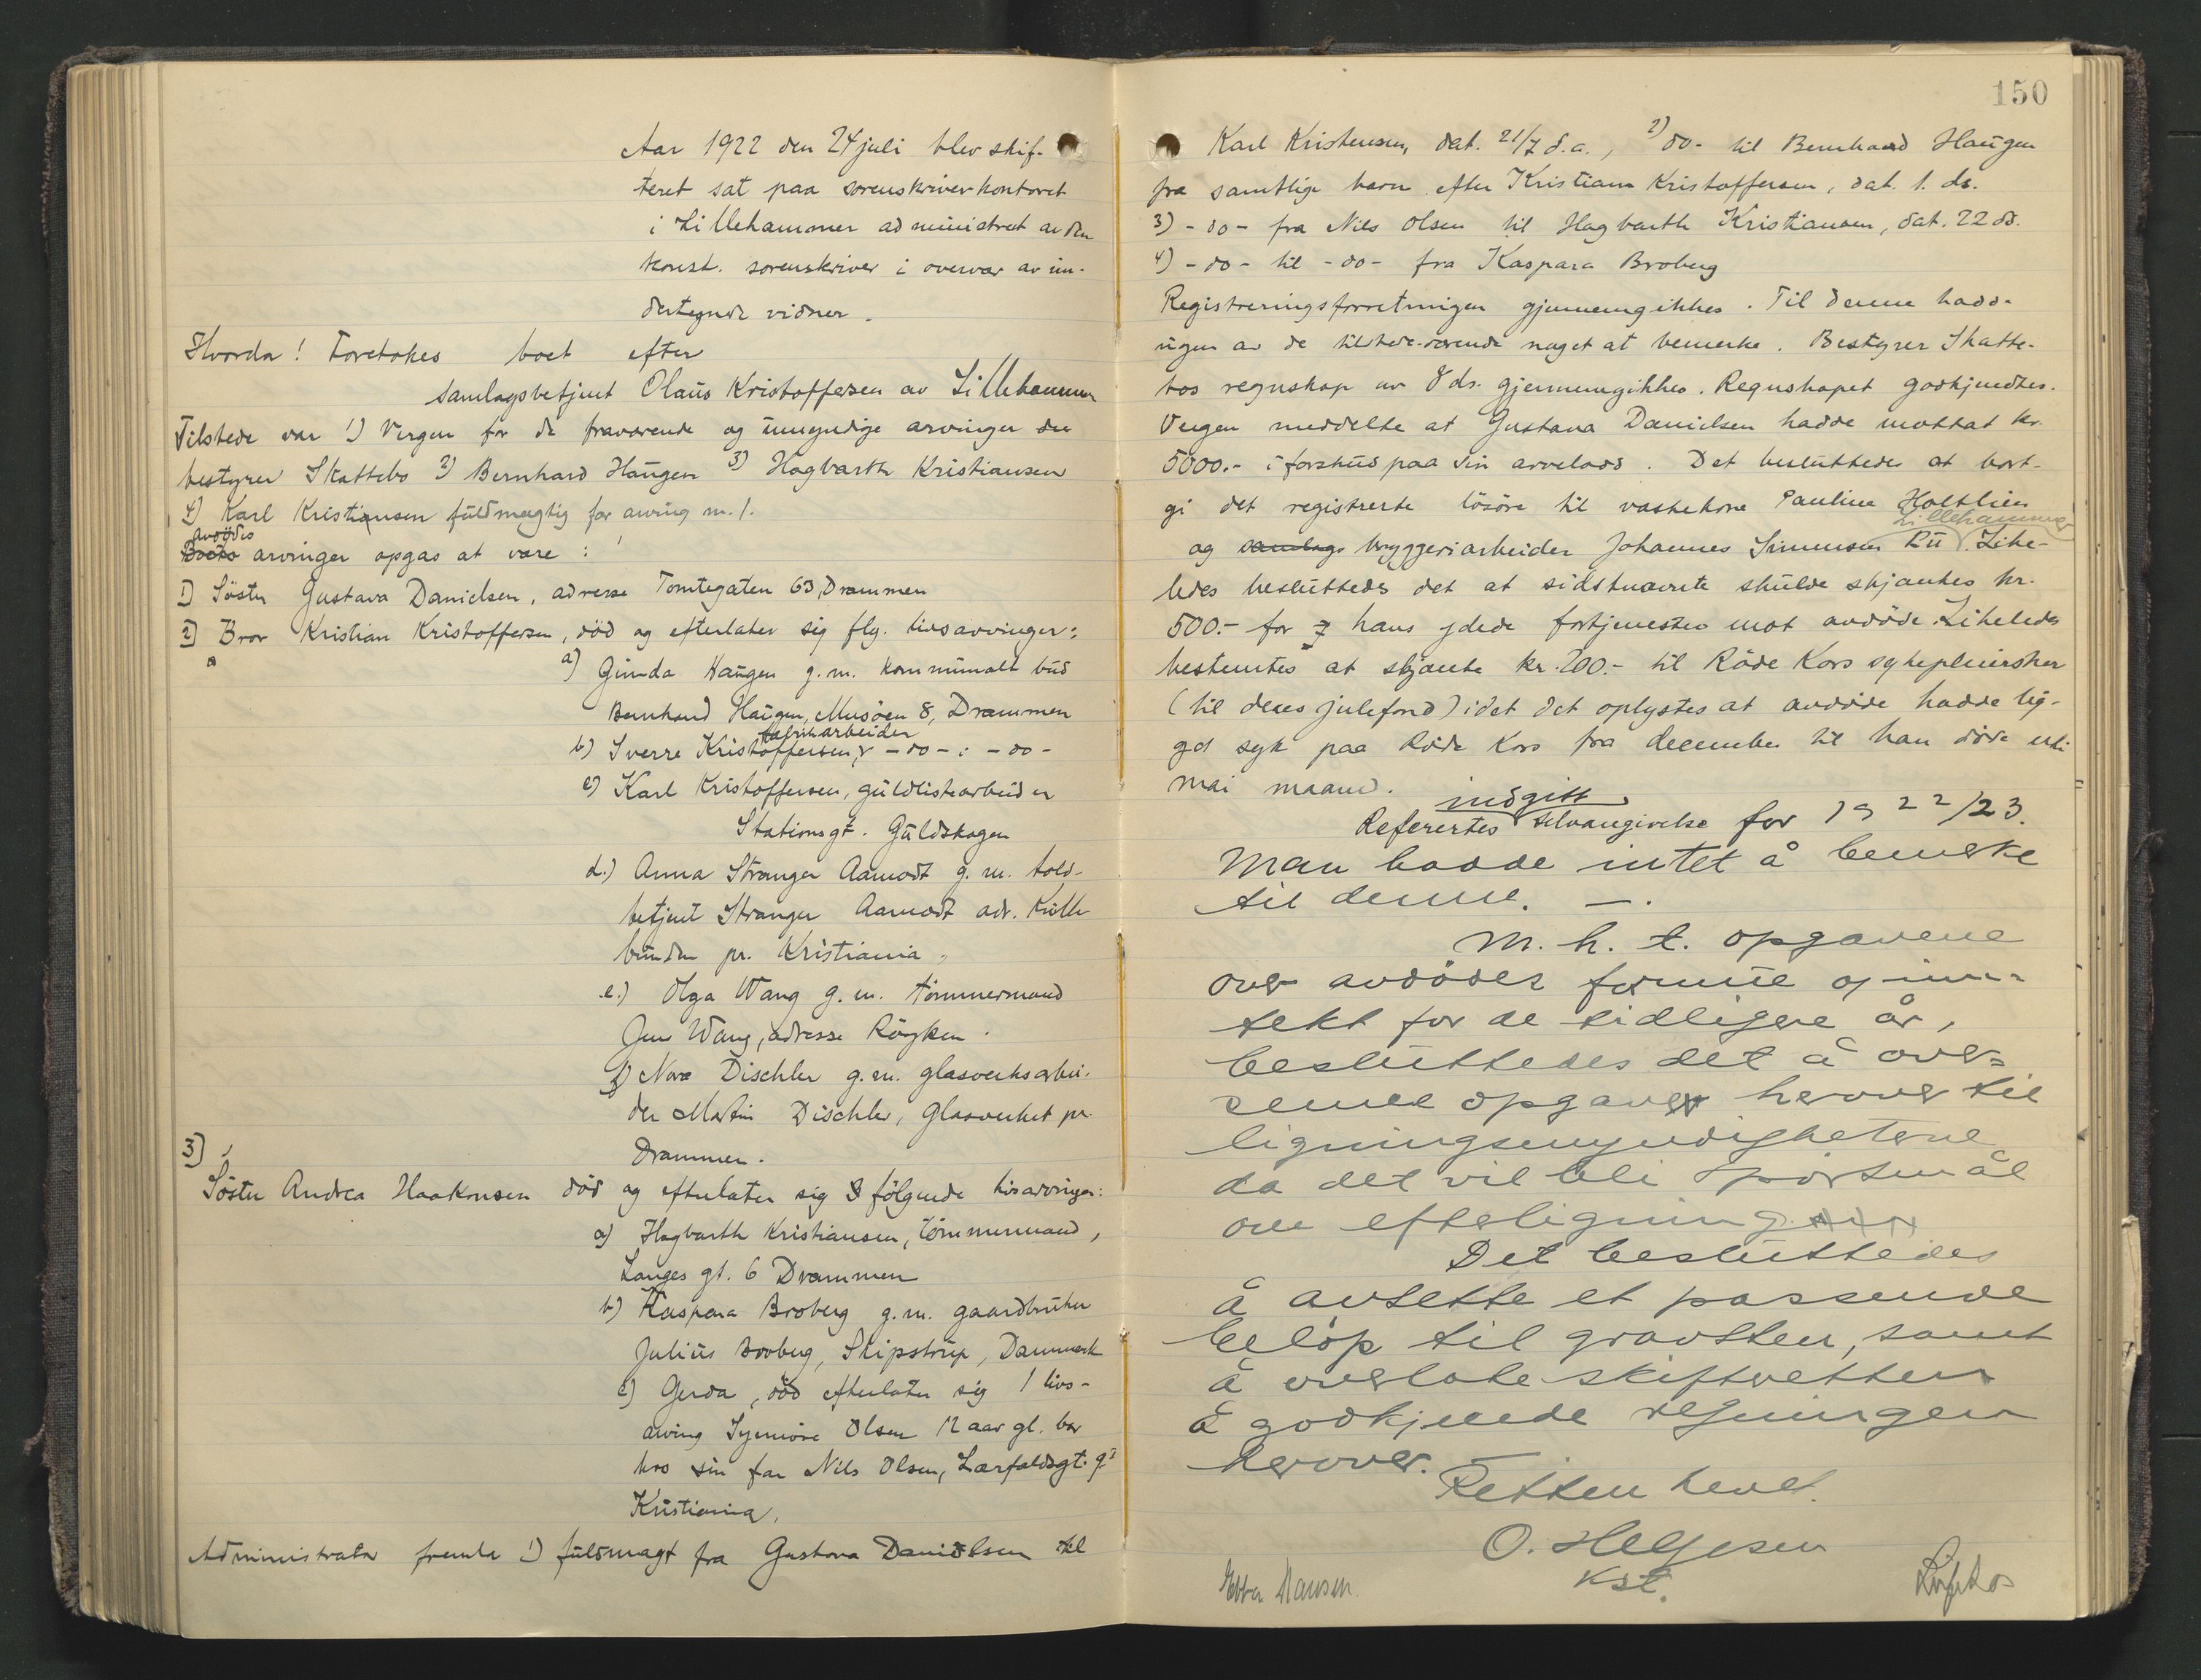 Aar 1922 den 24 juli blev skif-
teret sat paa sorenskriverkontoret
i Lillehammer administrert av den
konst. sorenskriver i overvær av un-
dertegnede vidner.
Hvorda! Foretokes boet efter
samlagsbetjent Olaus Kristoffersen av Lillehammer
Tilstede var 1) Vergen for de fraværende og umyndige arvinger
bestyrer Skattebo 2) Bernhard Haugen 3) Hagbarth Kristiansen
4) Karl Kristiansen fuldmægtig for arving nr. 1.
avdödes
Boets arvinger opgas at være:
1) Söster Gustava Danielsen, adresse Tomtegaten 63, Drammen
2) Bror Kristian Kristoffersen, död og efterlater sig flg. livsarvinger:
a) Gunda Haugen g.m. kommunalt bud
Bernhard Haugen, Musöen 8, Drammen
fabrikarbeider
b) Sverre Kristoffersen, -do-: -do-
c) Karl Kristoffersen, guldlistearbeider
Stationsgt. Guldskogen
d.) Anna Stranger Aamodt g.m. told-
betjent Stranger Aamodt adr. Kolb
bunden pr. Kristiania.
e.) Olga Wang g.m. tömmermand
Jens Wang, adresse Röyken.
f) Nora Dischler g.m. glasverksarbei-
der Martin Dischler, Glasverket pr.
Drammen.
3)
Söster Andrea Haakonsen död og efterlater sig 3 fölgende livsarvinger:
a) Hagbarth Kristiansen, tömmermand,
Langes gt. 6 Drammen
b) Kaspara Broberg g.m. gaardbruker
Julius Broberg, Skipstrup, Danmark
c) Gerda, död efterlater sig 1 livs-
arving Synnöve Olsen 12 aar gl. bor
hos sin far Nils Olsen,
Kristiania.
Administrator fremla 1) fuldmagt fra Gustava Danielsen til
150
Karl Kristensen, dat. 21/7 d.a., 2) do- til Bernhard Haugen
fra samtlige barn efter Kristian Kristoffersen, dat. 1. ds.
3) -do- fra Nils Olsen til Hagbarth Kristiansen, dat. 22 ds.
4) -do- til -do- fra Kaspara Broberg
Registreringsforretningen gjennemgikkes. Til denne hadd-
ingen av de tilstedeværende noget at bemerke. Bestyrer Skatte-
bos regnskap av 8 ds. gjennemgikkes. Regnskapet godkjendtes.
Vergen meddelte at Gustava Danielsen hadde mottat kr.
5000.- i forskud paa sin arvelodd. Det besluttedes at bort-
gi det registrerte lösöre til vaskekone Pauline Holtlien
Lillehammer
og samlags bryggeriarbeider Johannes Simensen Ru. Like-
ledes besluttedes det at sidstnævnte skulde skjænkes kr.
500.- for hans ydede fortjenester mot avdöde. Likeledes
bestemtes at skjænke kr. 200.- til Röde Kors sykepleiersker
(til deres julefond) idet det oplystes at avdöde hadde lig-
get syk paa Röde Kors fra december til han döde uti
mai maaned.
indgitt
Referertes selvangivelse for 1922/23.
Man hadde intet å bemerke
til denne. -.
M. h. t. opgavene
over avdödes formue og inn-
tekt for de tidligere år,
besluttedes det å over-
sende opgaver herover til
ligningsmyndighetene
da det vil bli spörsmål
om efterligning.
Det besluttedes
å avsette et passende
belöp til gravsten, samt
å overlate skifteretten
å godkjende regningen
herover. -
Retten hevet.
O. Helgesen
kst.
Ebba Hansen.